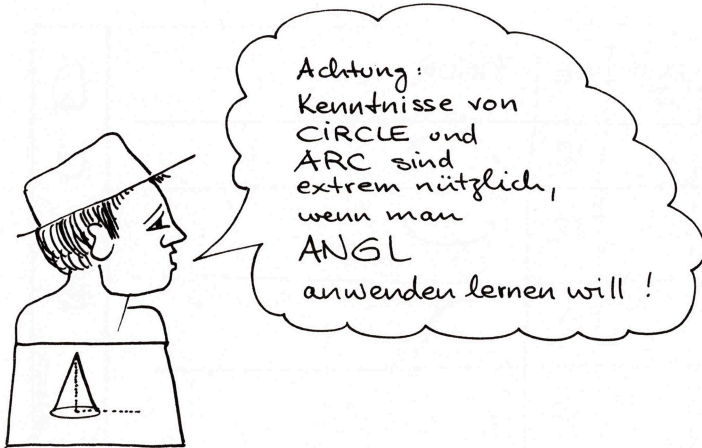 Achtung:
Kenntnisse von
CiRCLE und
ARC sind
extrem nützlich,
wenn man
ANGL
anwenden lernen will !